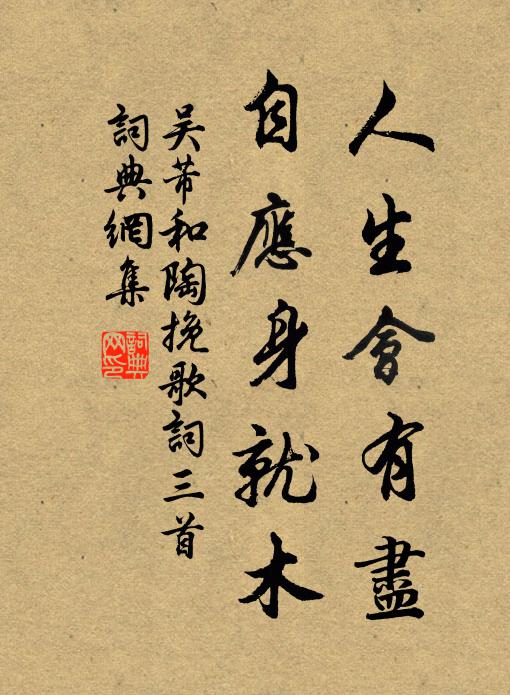 人生會有盡
自應身就木
吴芾和陶挽歌詞三首
詞典網集
詞典網印